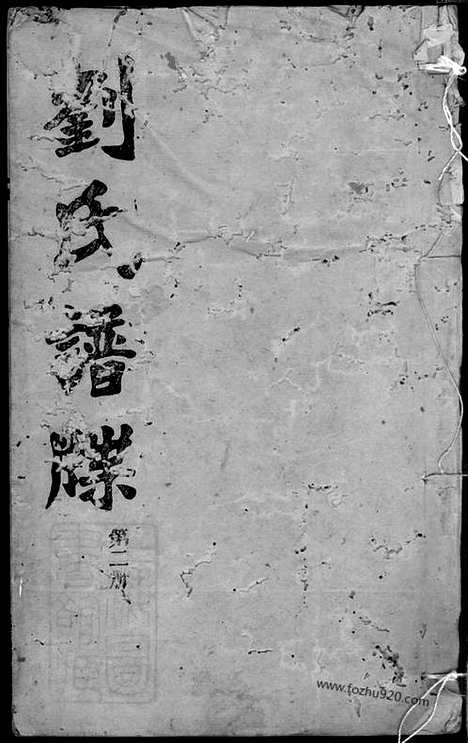 劉氏譜牒
第二册
www.fozhu920.com